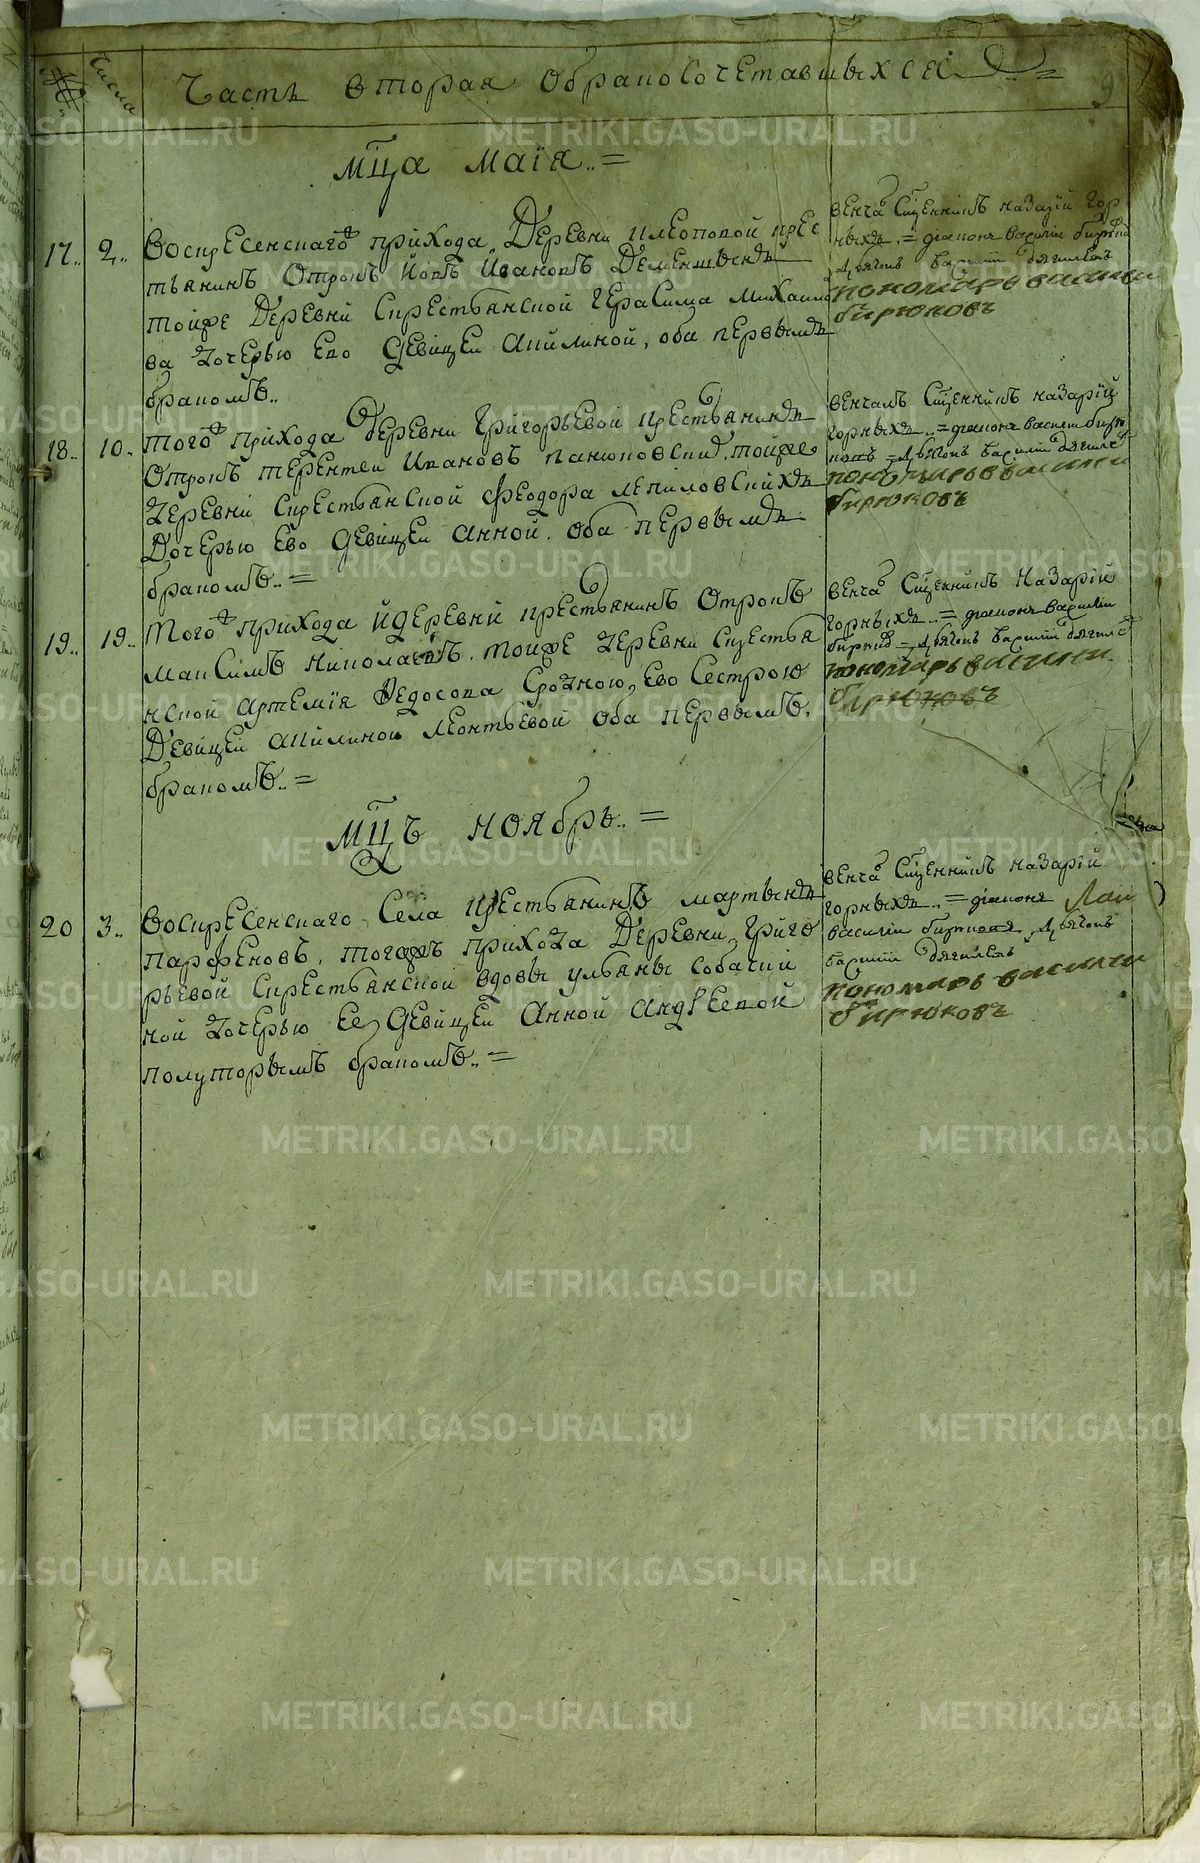 №
Числа
Часть вторая обракосочетавшыхся
9
мца маїя
17
2
воскресенскаго прихода деревни клеоповой крес
тьянинъ отрокъ Иовъ Ивановъ
тойже деревни скрестьянской герасима михаило
ва дочерью ево девицей акилиной, оба первымъ
бракомъ
венча сщенникъ назарїй гор
ныхъ диаконъ василїи
дьячокъ василїи
пономарь василии
бирюковъ
18
10
того прихода деревни григорьевой крестьянинъ
отрокъ терентеи ивановъ тойже
деревни скрестьянской феодора
дочерью ево девицей анной оба первымъ
бракомъ
венчалъ сщенникъ назарїй
горныхъ диаконъ василїи бирю
ковъ дьячокъ василїи
пономарь василии
бирюковъ
19
19
того прихода и деревни крестьянинъ отрокъ
максимъ николаевъ тойже деревни скрестья
нской артемїя федосова сродною ево сестрою
девицей акилиной леонтьевой оба первымъ
бракомъ
венча сщенникъ назарїй
горныхъ диаконъ василїи
дьячокъ василїи
пономарь василии
бирюковъ
мцъ ноябрь
20
3
воскресенскаго села крестьянинъ мартынъ
парфеновъ тогожъ прихода деревни григо
рьевой скрестьянской вдовы ульяны собакин
ной дочерью ее девицей анной андреевой
полуторымъ бракомъ
венча сщенникъ назарїй
горныхъ диаконъ
василїи бирюковъ дьячокъ
василїи
пономарь василии
бирюковъ
METRIKI.GASO-URAL.RU